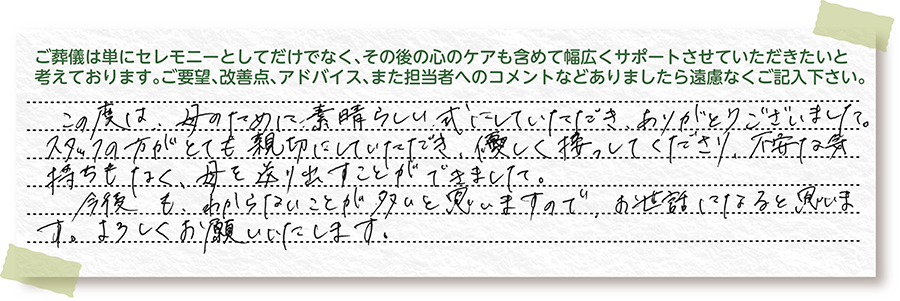 ご葬儀は単にセレモニーとしてだけでなく、その後の心のケアも含めて幅広くサポートさせていただきたいと
考えております。ご要望、改善点、アドバイス、また担当者へのコメントなどありましたら遠慮なくご記入下さい。
この度は、母のために素晴らしい式にしていただき、ありがとうございました。
スタッフの方がとても親切にしていただき、優しく接っしてくださり、不安な気
持ちもなく、母を送り出すことができました。
今後も、わからないことが多いと思いますので、お世話になると思いま
す。よろしくお願いいたします。